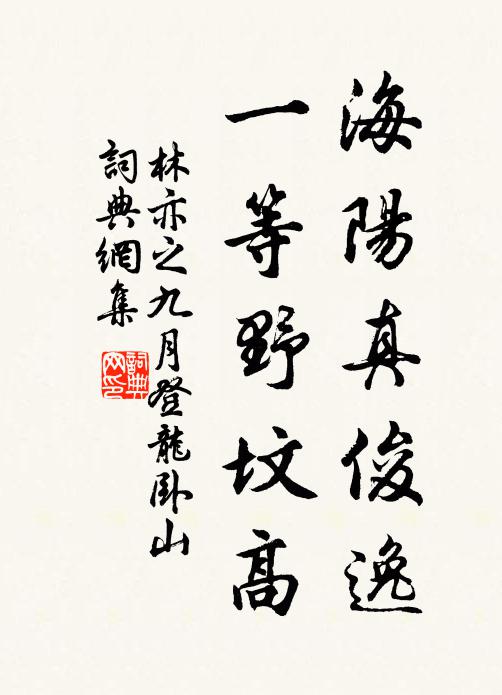 海陽真俊逸
一等野坟高
林亦之九月登龍卧山
詞典網集
詞典网印